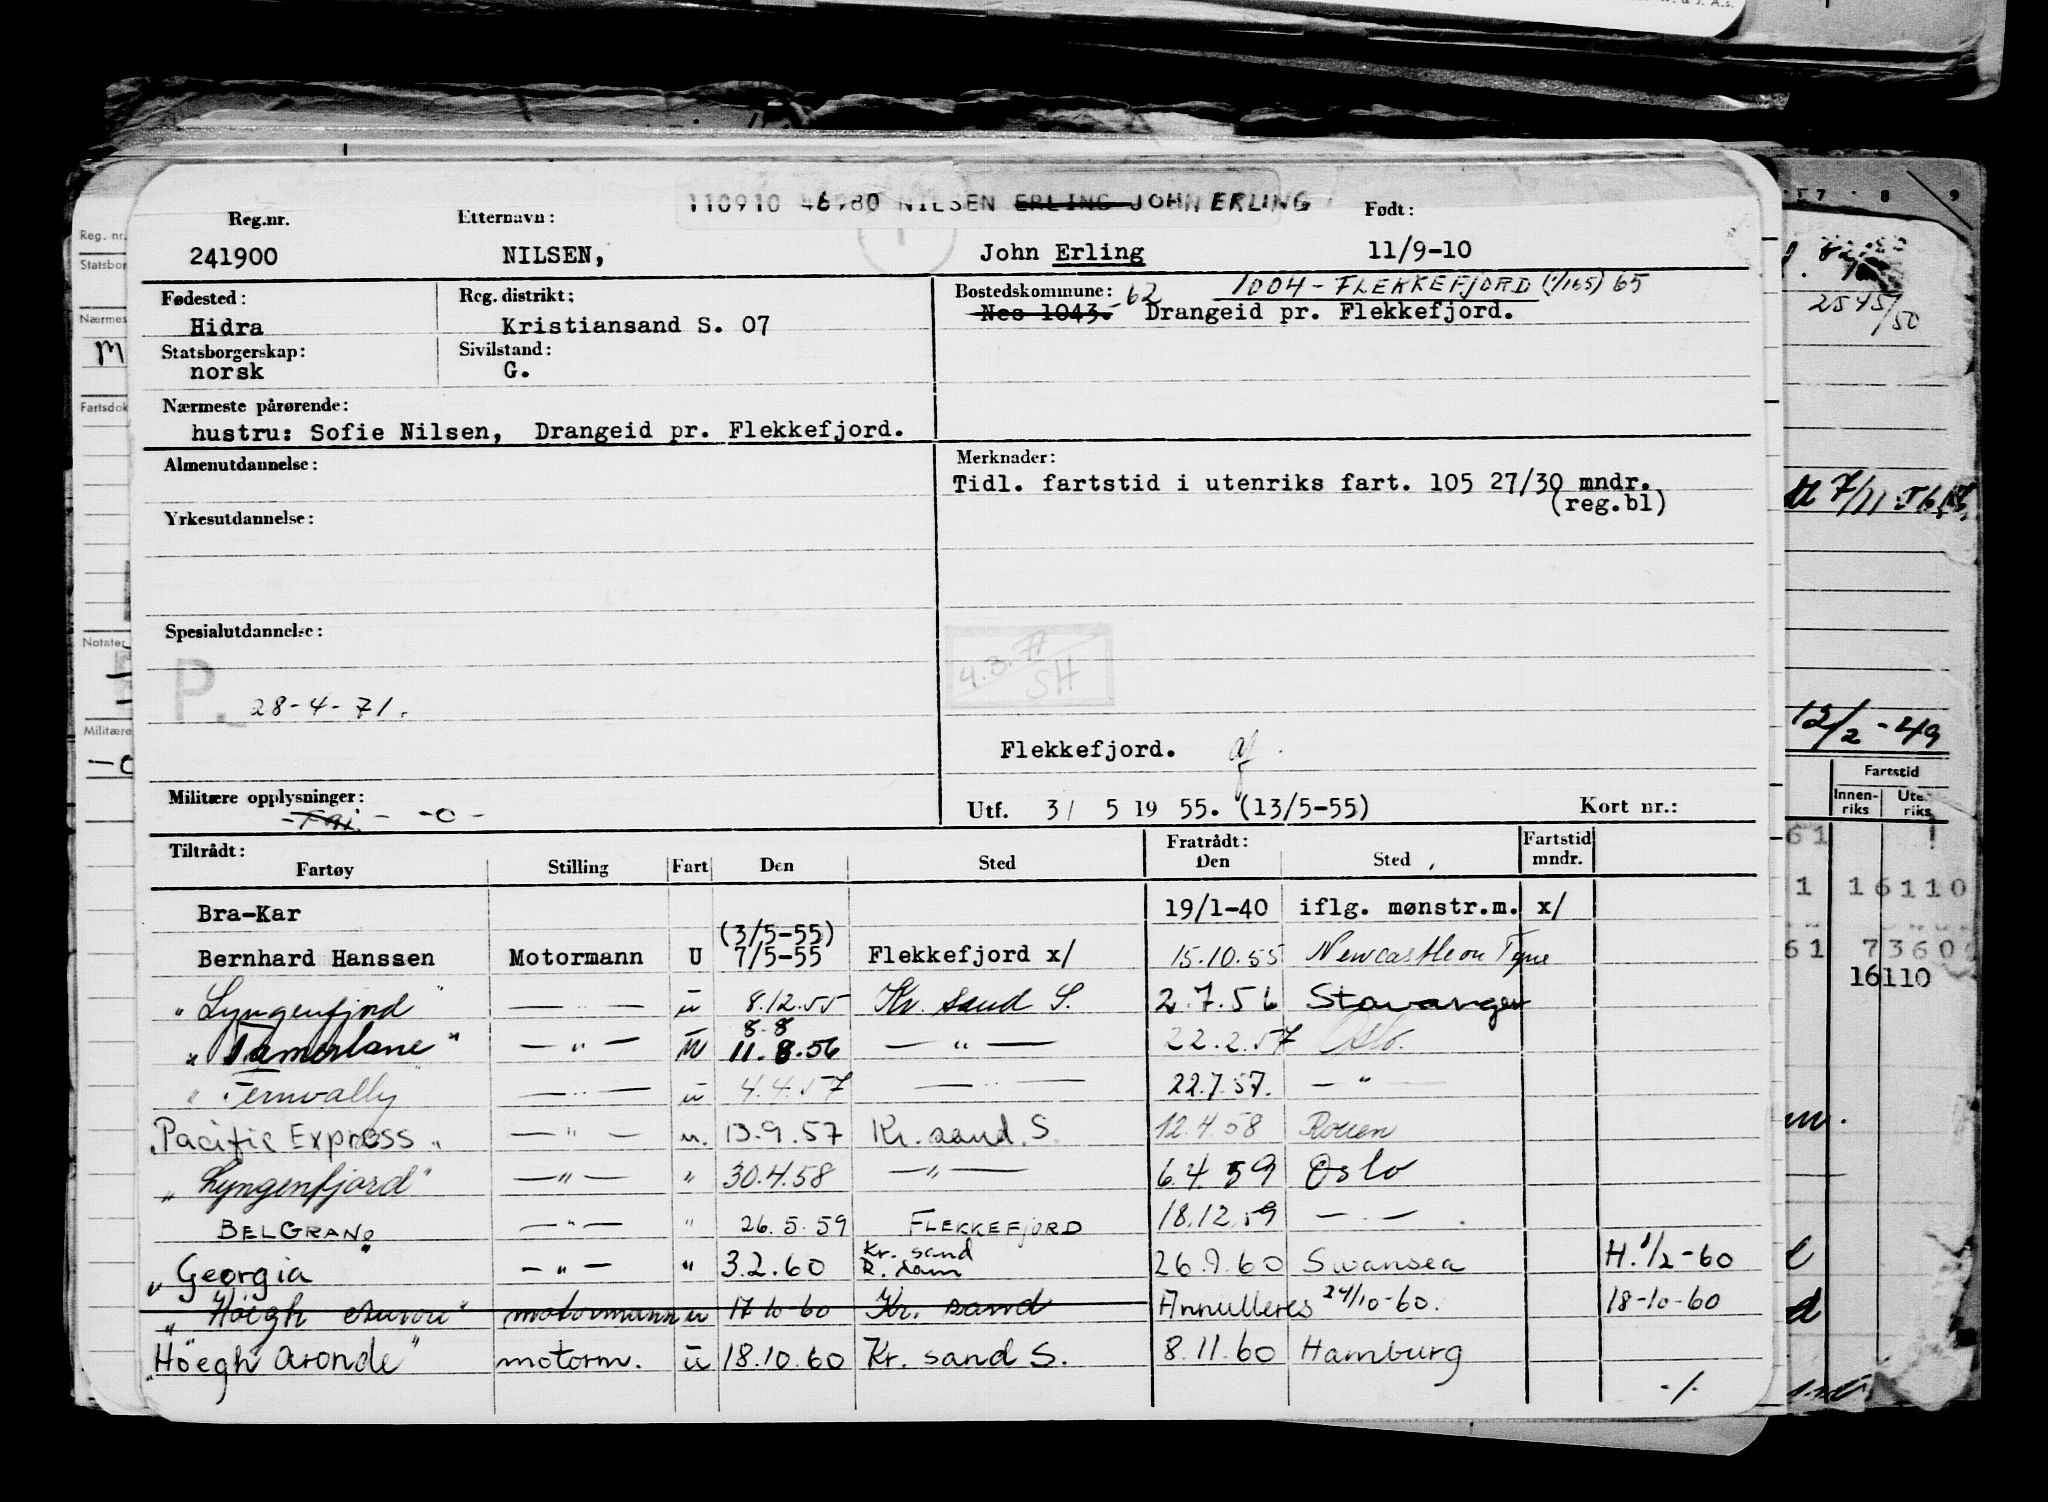 110910 46980 NILSEN ERLING JOHN ERLING
Reg.nr. Etternavn: Født:
241900 NILSEN, John Erling 11/9-10
Fødested: Reg. distrikt: Bostedskommune: -62 1004 - FLEKKEFJORD (1/165) 65
Hidra Kristiansand S. 07 Nes 1043. Drangeid pr. Flekkefjord.
Statsborgerskap: Sivilstand:
norsk G.
Nærmeste pårørende:
hustru: Sofie Nilsen, Drangeid pr. Flekkefjord.
Almenutdannelse: Merknader:
Tidl. fartstid i utenriks fart. 105 27/30 mndr.
(reg.bl)
Yrkesutdannelse:
Spesialutdannelse:
4.3.71
SH
P.
28-4-71.
Flekkefjord.
Militære opplysninger: -o- Utf. 3/ 5 19 55. (13/5-55) Kort nr.:
Tiltrådt: Fratrådt: Fartstid
Fartøy Stilling Fart Den Sted Den Sted mndr.
Bra-Kar 19/1-40 iflg. mønstr.m. x/
(3/5-55)
Bernhard Hanssen Motormann U 7/5-55 Flekkefjord x/ 15.10.55 Newcastle on Tyne
"Lyngenfjord" — " — u 8.12.55 Kr. sand S. 2.7.56 Stavanger
8.8
"Tamerlane" — " — u 11.8.56 — " — 22.2.57 Oslo.
"Fernvally" — " — u 4.4.57 — " — 22.7.57. — " —
"Pacific Express" — " — u. 13.9.57 Kr. sand. S. 12.4.58 Rouen
"Lyngenfjord" — " — " 30.4.58 — " — 6.4.59 Oslo
BELGRANO — " — " 26.5.59 FLEKKEFJORD 18.12.59 — " —
"Georgia" — " — " 3.2.60 Kr. sand 26.9.60 Swansea H. 1/2-60
"Höegh" motormann u 17-10-60 Kr. sand Annulleres 24/10-60. 18-10-60
"Höegh Aronde" motorm. u 18.10.60 Kr. sand S. 8.11.60 Hamburg
-/-
Reg. nr.
Statsbor
Nærmes
Fartsdok
Notater
Militære
7 8 9
2545/50
12/2-49
Fartstid
Innen-riks Ute. riks
61
1 16110
61 7360
16110